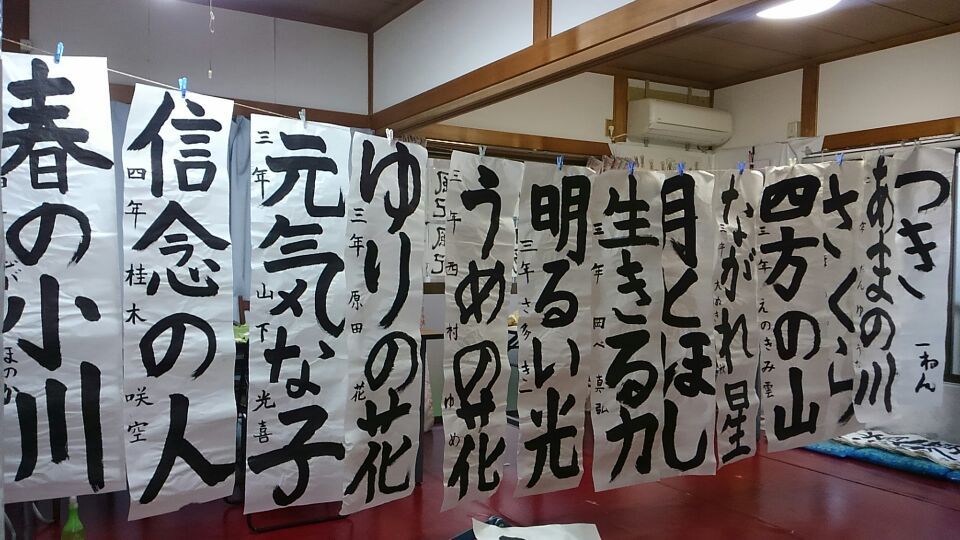 春の小川
信念の人
四年 桂木 咲空
元気な子
三年 山下 光喜
ゆりの花
三年 原田 花
うめの花
三年 西村 ゆめ
明るい光
生きる力
三年 岡べ 真弘
月とほし
ながれ星
四方の山
三年 えのきみ雲
さくら
あまの川
つき